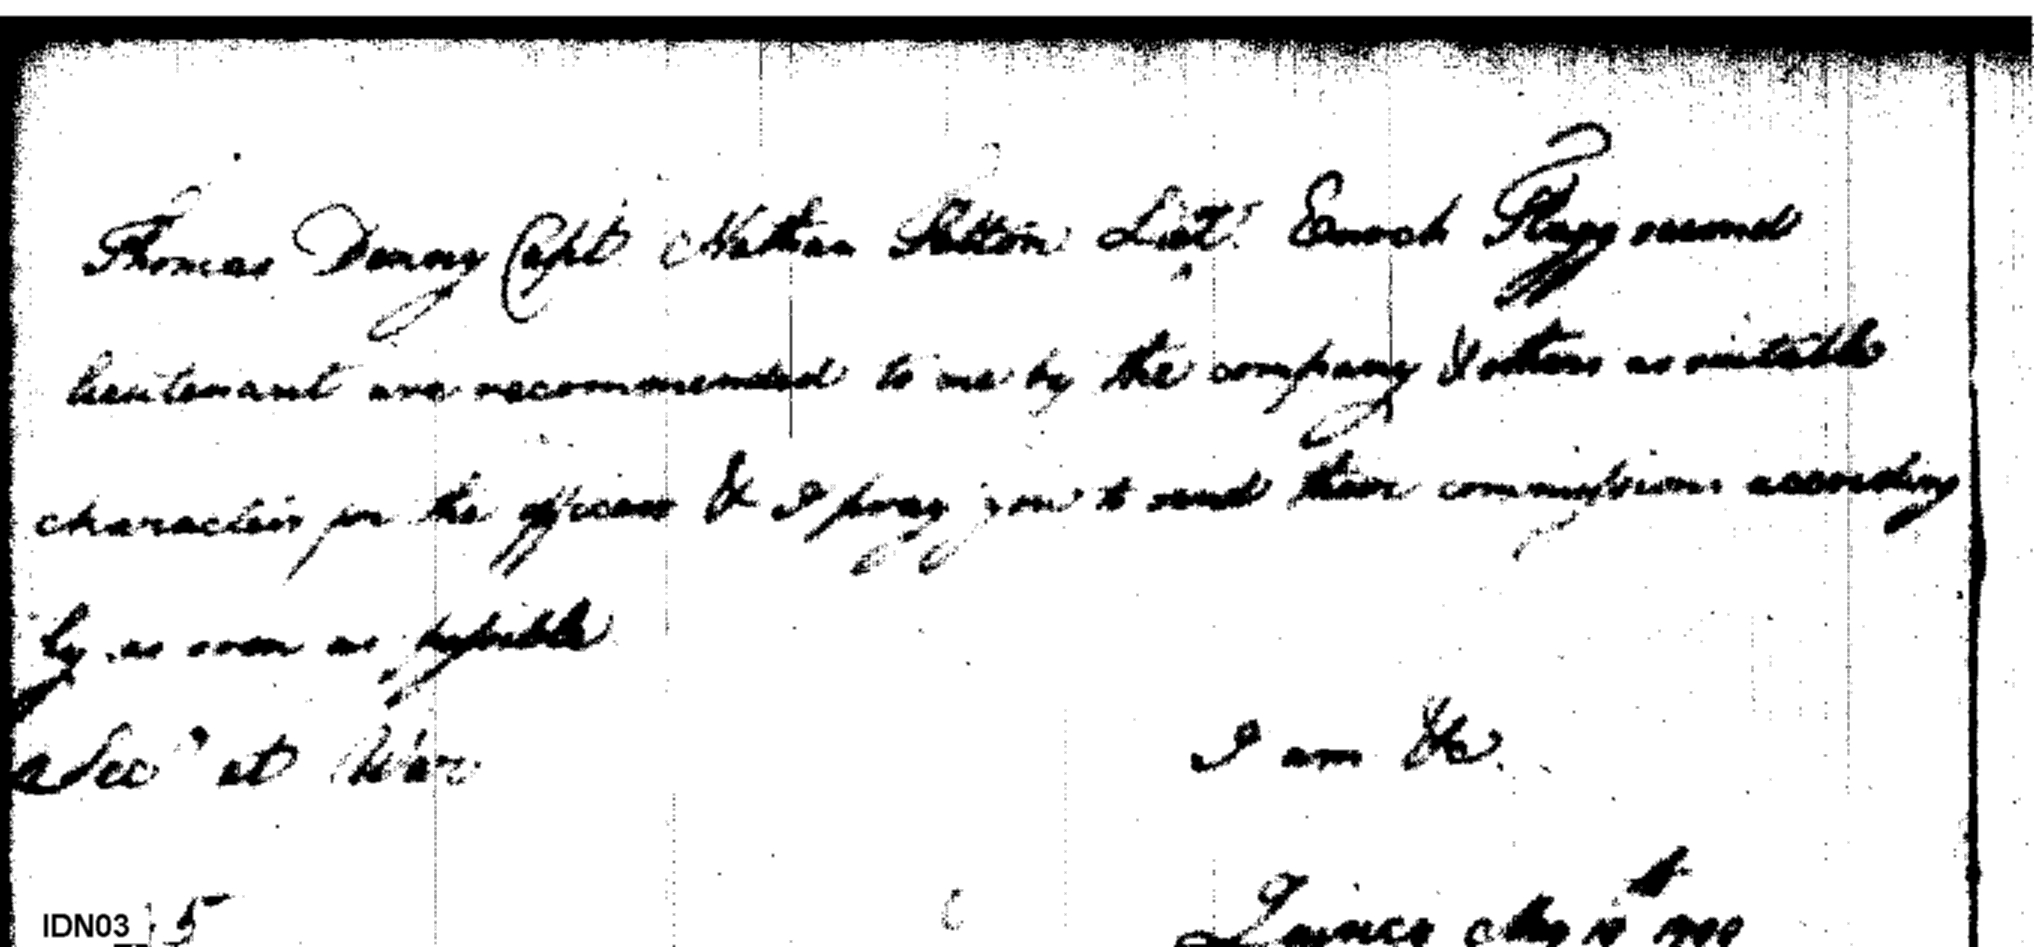 Thomas Denny Capt. Nathan Patton Liut. Enoch Flagg second
lieutenant are recommended to me by the company & others as suitable
characters for the officers & I pray you to send their commissions according
ly as soon as possible
Secy at War
I am &c.
Quincy May 10th
IDN03 5